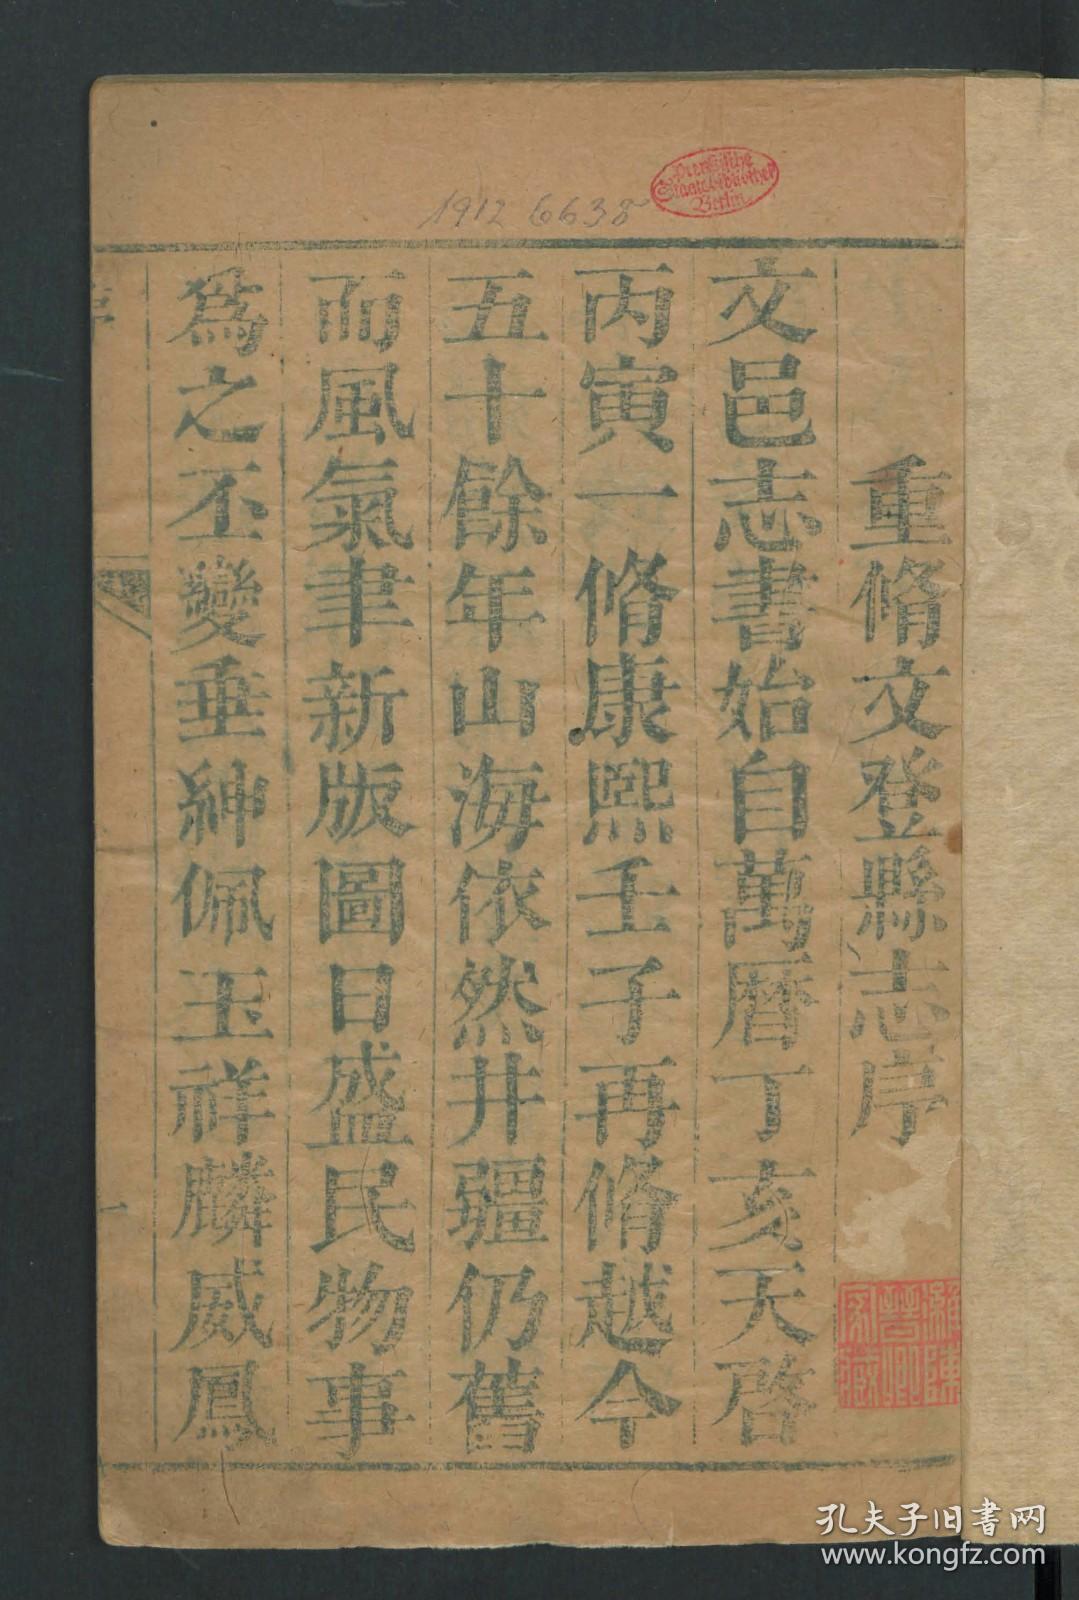 重脩文登縣志序
文邑志書始自萬曆丁亥天啓
丙寅一脩康熙壬子再脩越今
五十餘年山海依然井疆仍舊
而風氣聿新版圖日盛民物事
為之丕變垂紳佩玉祥麟威鳳
序
一
1912 6635
Preußische
Staatsbibliothek
Berlin
孔夫子旧书网
www.kongfz.com